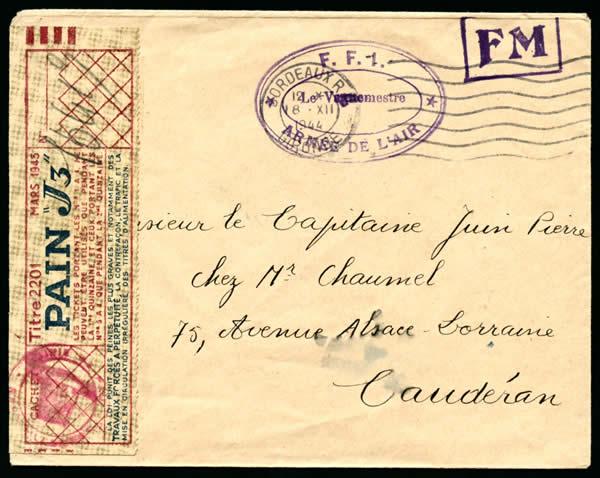 F. F. I.
Le Vaguemestre
ARMÉE DE L'AIR
BORDEAUX R.
12 H
8 - XII
1944
GIRONDE
FM
sieur le Capitaine Juin Pierre
chez Mr Chaumel
75, Avenue Alsace-Lorraine
Caudéran
CACHET
Titre 2201 MARS 1945
PAIN "J3"
LES TICKETS PORTANT
QUINZAINE ET CEUX PORTANT
QUE PENDANT LA QUINZAINE
LA LOI PUNIT DES PEINES LES PLUS GRAVES ET NOTAMMENT DES
TRAVAUX FORCÉS A PERPÉTUITÉ LA CONTREFAÇON, LE TRAFIC ET LA
MISE EN CIRCULATION IRRÉGULIÈRE DES TITRES D'ALIMENTATION.